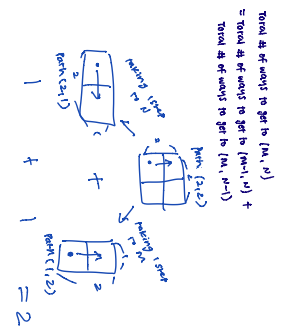 Total # of ways to get to (M, N)
= Total # of ways to get to (M-1, N) +
Total # of ways to get to (M, N-1)
Path (2,2)
2
2
taking 1 step
to N
taking 1 step
to M
2
1
Path (2,1)
1
2
Path (1,2)
+
1 + 1 = 2